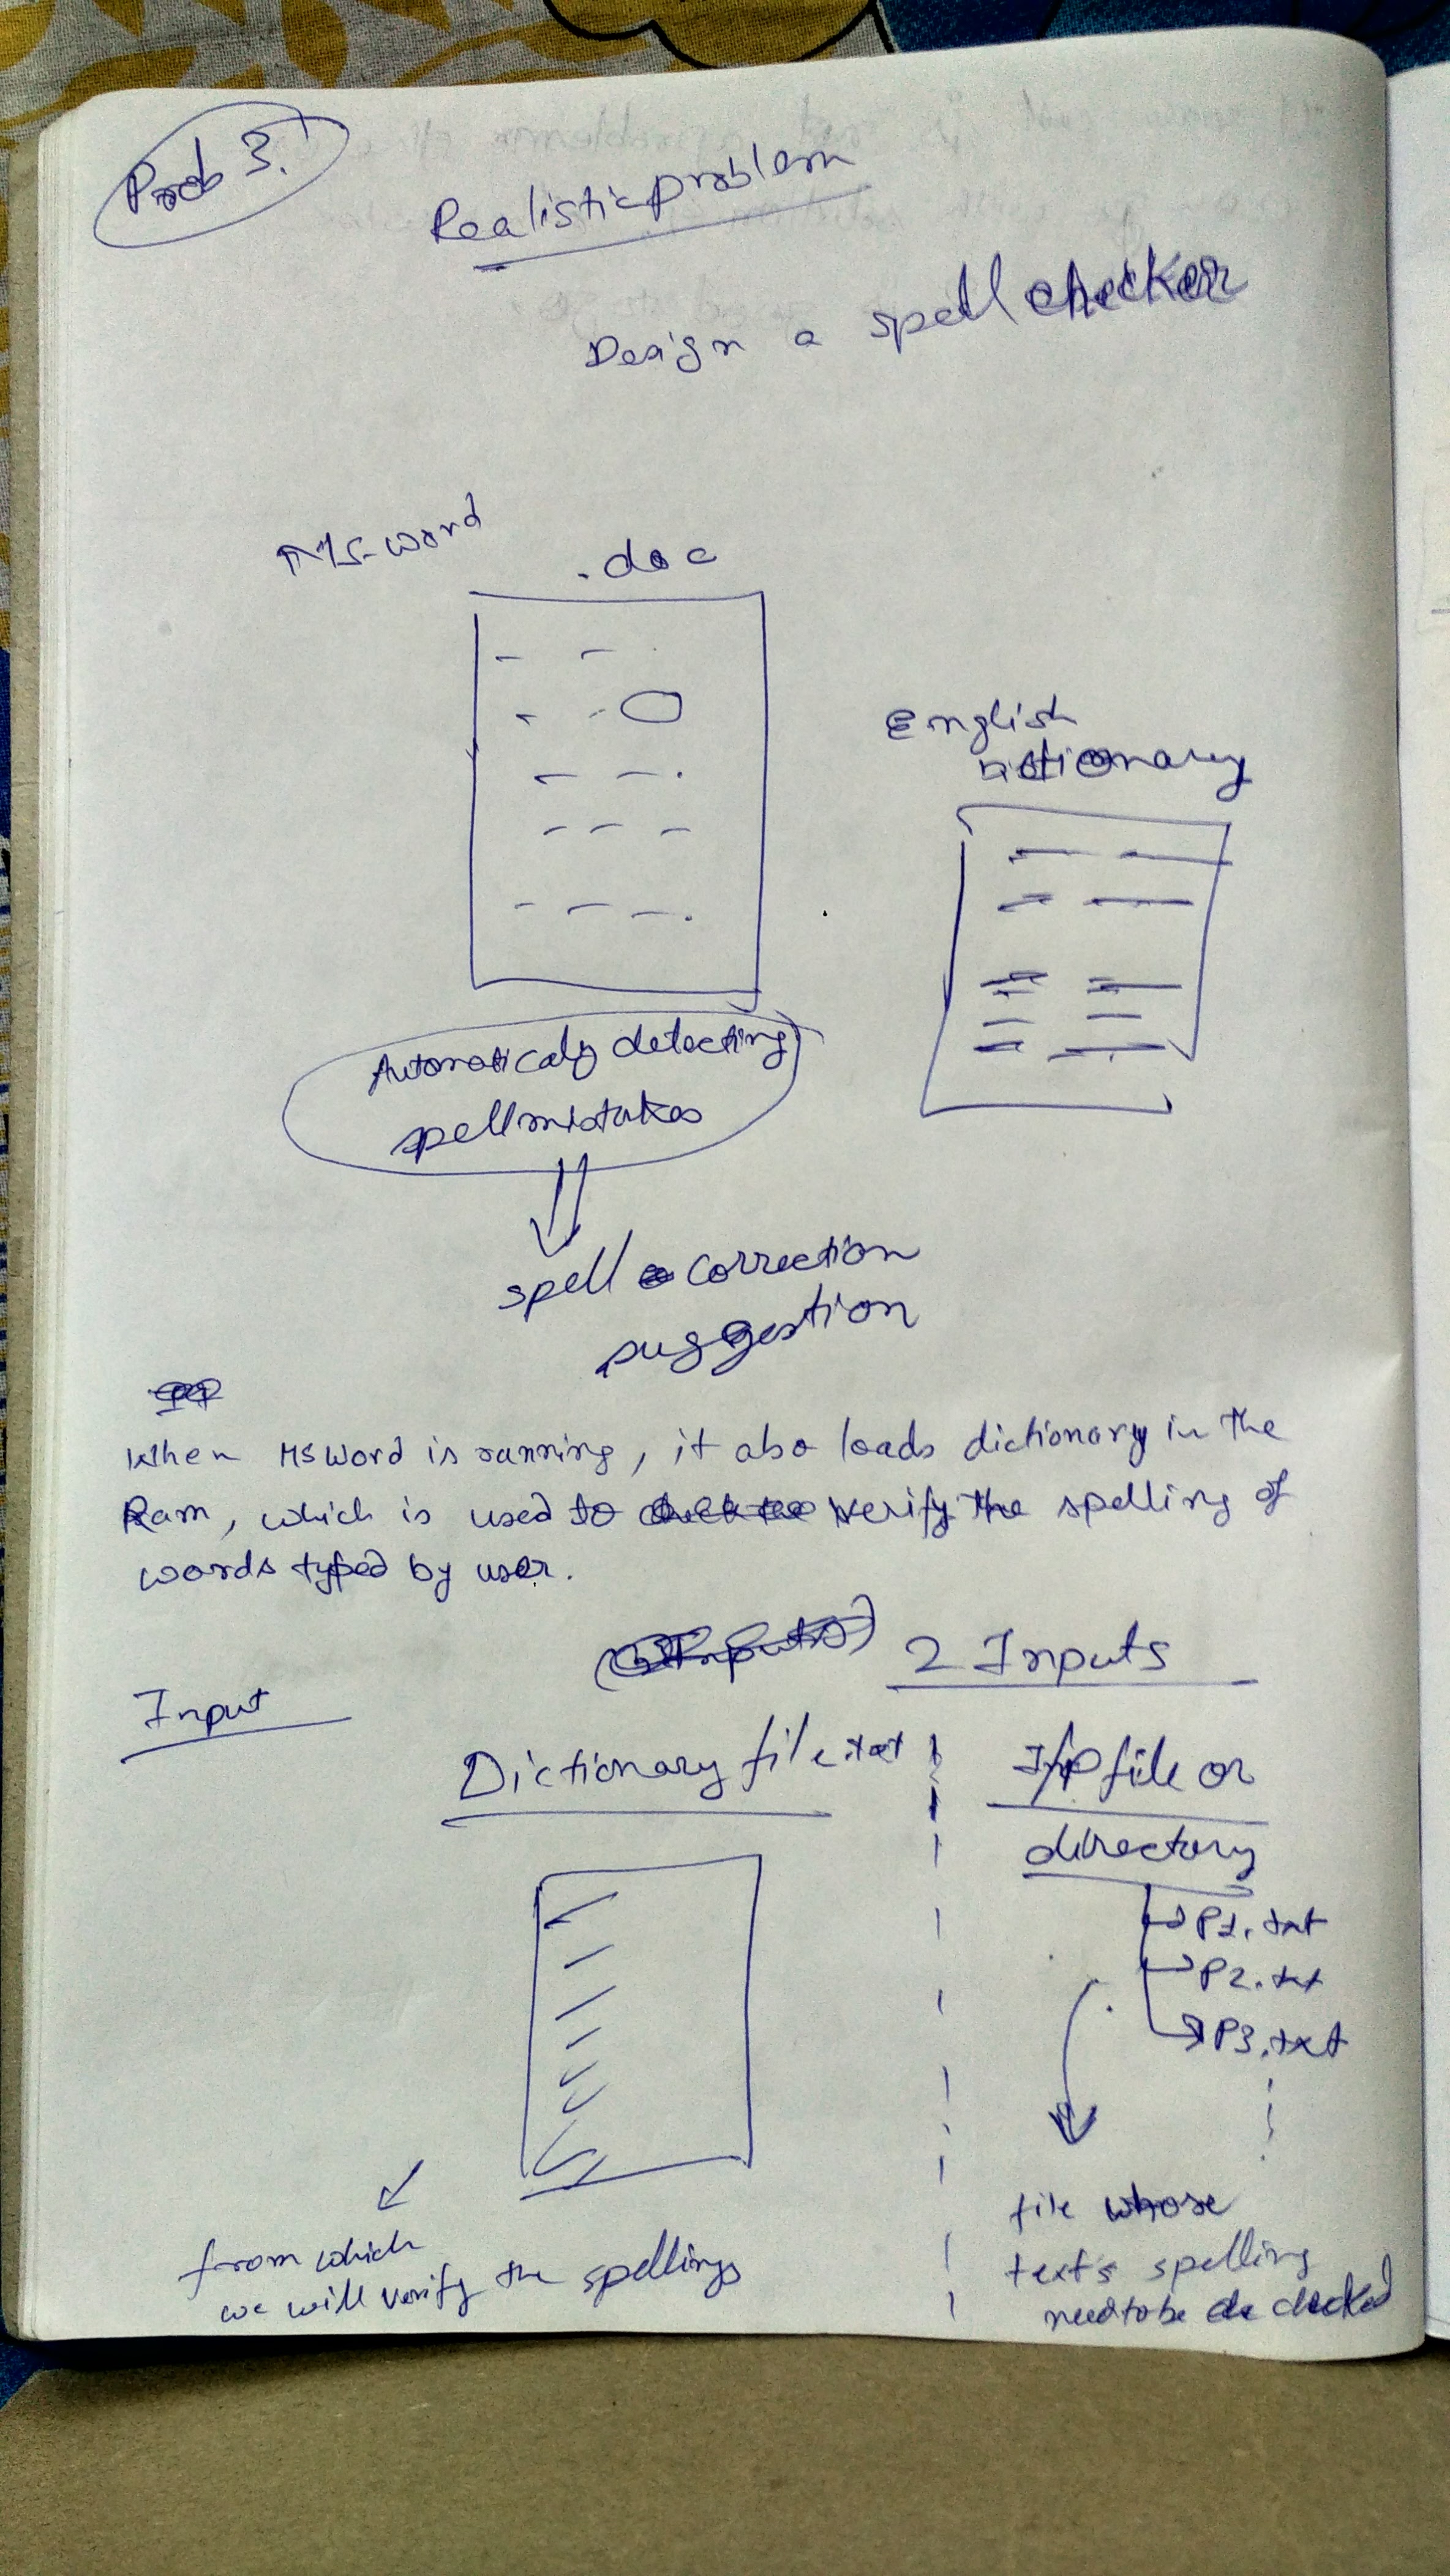 Prob 3.
Realistic problem
Design a spell checker
MS-word
.doc
English
Dictionary
Automaticaly detecting
spell mistakes
spell correction
suggestion
When MS Word is running, it also loads dictionary in the
Ram, which is used to verify the spelling of
words typed by user.
2 Inputs
Input
Dictionary file.txt
I/P file or
directory
P1.txt
P2.txt
P3.txt
from which
we will verify the spellings
file whose
text's spelling
need to be checked